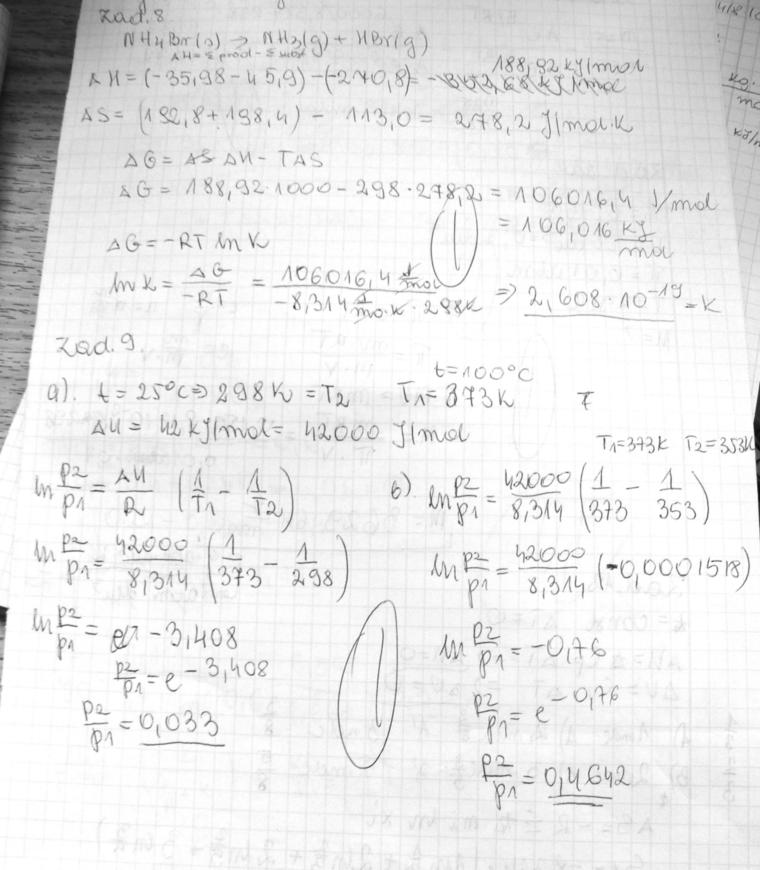 Zad. 8
NH4Br(s) → NH3(g) + HBr(g)
ΔH = Σ prod - Σ subst
ΔH = (-35,98 - 45,9) - (-270,8) = 188,92 kJ/mol
ΔS = (192,8 + 198,4) - 113,0 = 278,2 J/mol·K
ΔG = ΔH - TΔS
ΔG = 188,92 · 1000 - 298 · 278,2 = 106016,4 J/mol
= 106,016 kJ/mol
ΔG = -RT ln K
ln K = ΔG/-RT = 106016,4 J/mol / -8,314 J/mol·K · 298K ⇒ 2,608 · 10^-19 = K
Zad. 9
a). t = 25°C ⇒ 298K = T2 t = 100°C T1 = 373K
ΔH = 42 kJ/mol = 42000 J/mol
ln p2/p1 = ΔH/R (1/T1 - 1/T2)
ln p2/p1 = 42000/8,314 (1/373 - 1/298)
ln p2/p1 = -3,408
p2/p1 = e^-3,408
p2/p1 = 0,033
T1 = 373K T2 = 353K
b). ln p2/p1 = 42000/8,314 (1/373 - 1/353)
ln p2/p1 = 42000/8,314 (-0,0001518)
ln p2/p1 = -0,76
p2/p1 = e^-0,76
p2/p1 = 0,4642